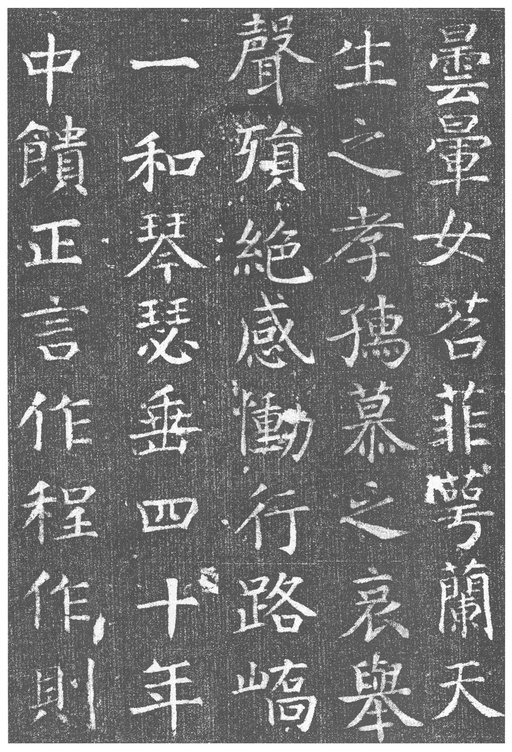 曇暈女苕菲蕚蘭天
生之孝孺慕之哀舉
聲殞絶感慟行路嶠
一和琴瑟垂四十年
中饋正言作程作則